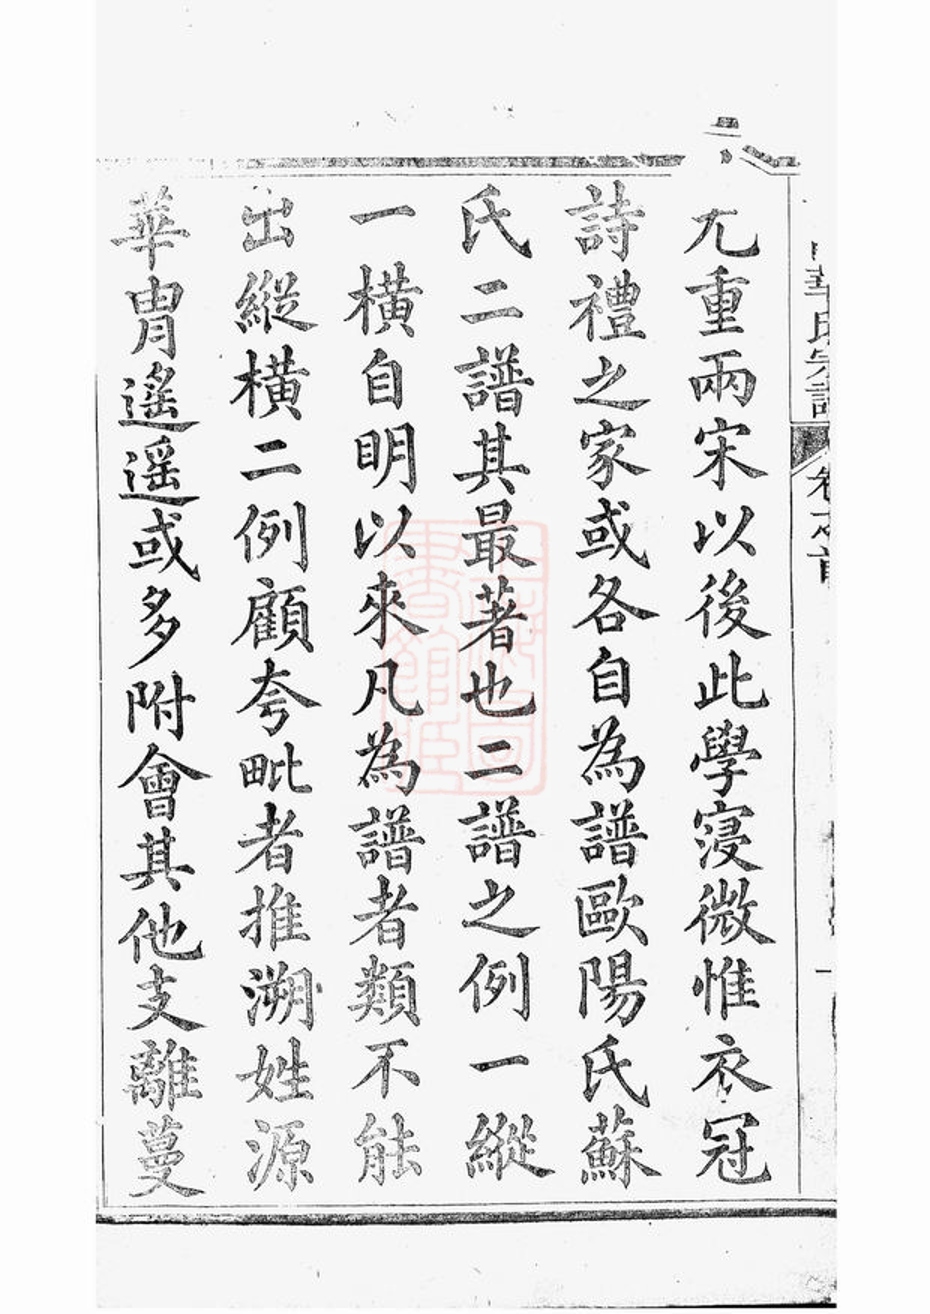 尤重兩宋以後此學寖微惟衣冠
詩禮之家或各自為譜歐陽氏蘇
氏二譜其最著也二譜之例一縱
一橫自明以來凡為譜者類不能
出縱橫二例顧夸毗者推溯姓源
華胄遙遙或多附會其他支離蔓